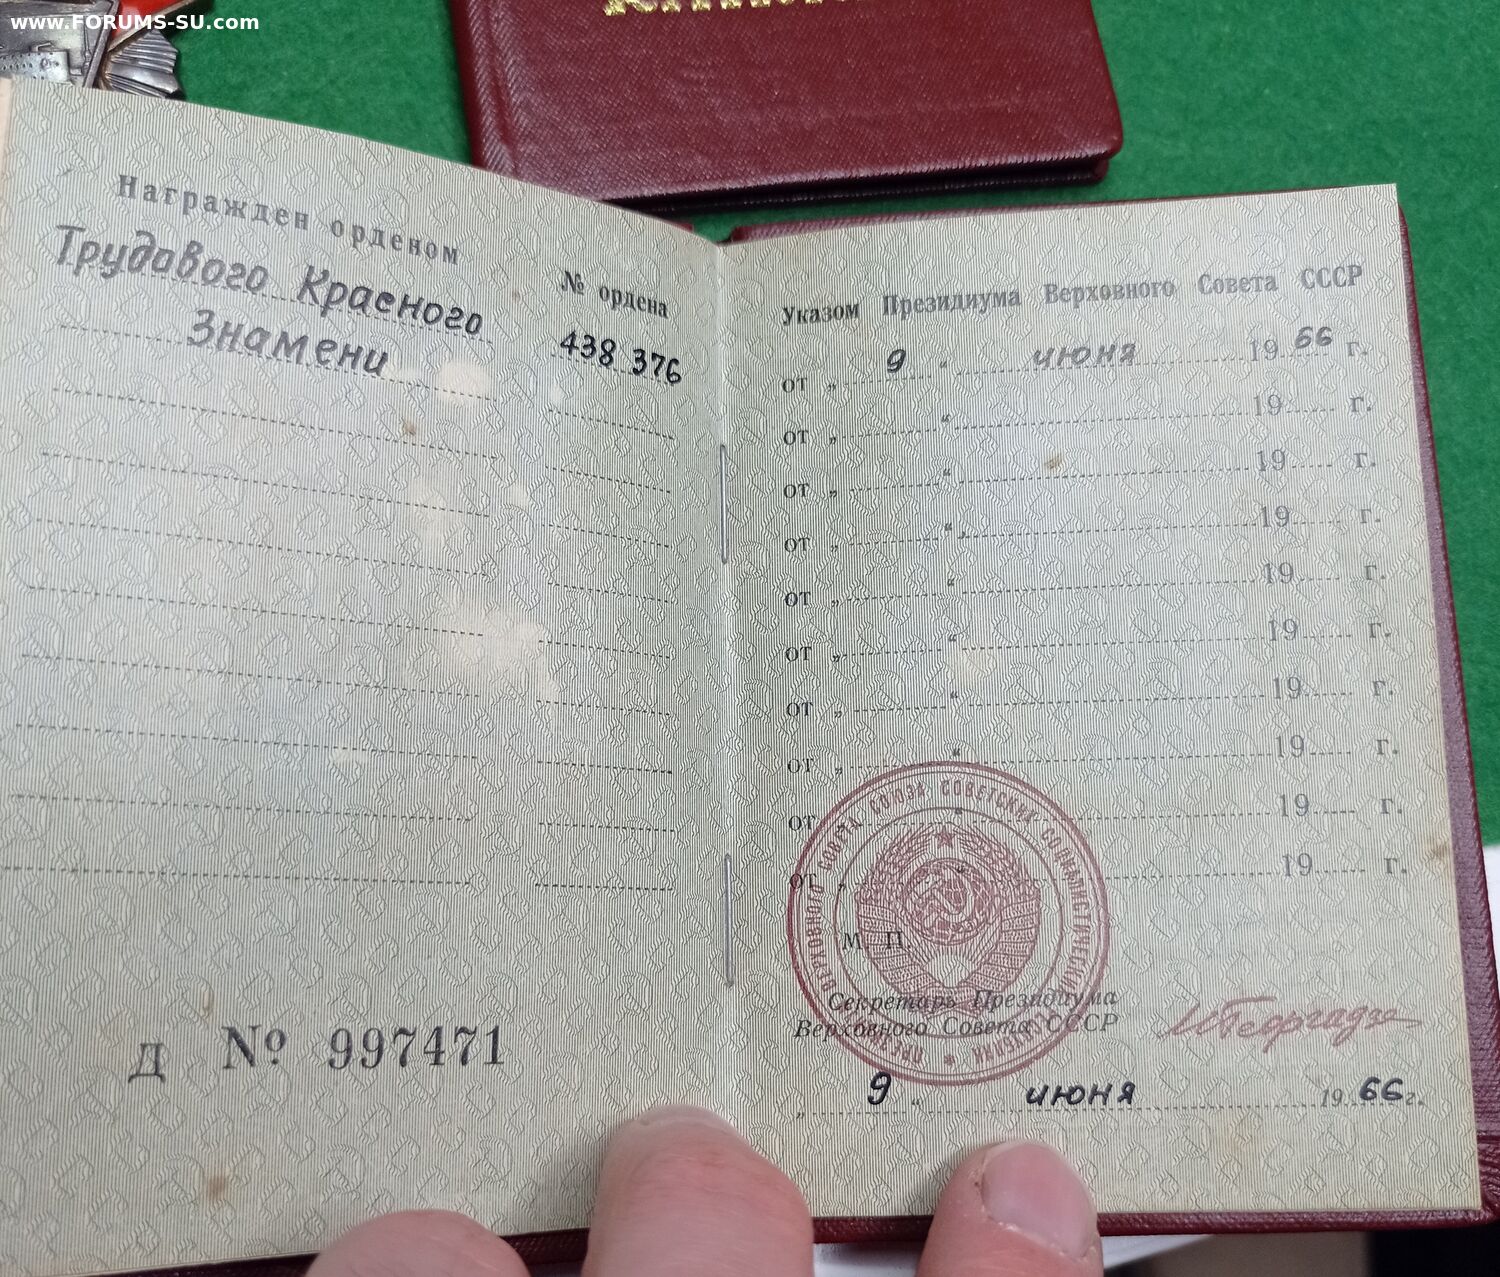 www.FORUMS-SU.com
Награжден орденом
Трудового Красного
Знамени
№ ордена
438 376
Д № 997471
Указом Президиума Верховного Совета СССР
от „ 9 “ июня 1966 г.
от „ “ 19 г.
от „ “ 19 г.
от „ “ 19 г.
от „ “ 19 г.
от „ “ 19 г.
от „ “ 19 г.
от „ “ 19 г.
от „ “ 19 г.
от „ “ 19 г.
ПРЕЗИДИУМ ВЕРХОВНОГО СОВЕТА СОЮЗА СОВЕТСКИХ СОЦИАЛИСТИЧЕСКИХ РЕСПУБЛИК
М. П.
Секретарь Президиума
Верховного Совета СССР
МГеоргадзе
„ 9 “ июня 1966 г.